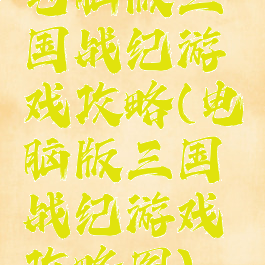 电脑版三
国战纪游
戏攻略(电
脑版三国
战纪游戏
攻略图)